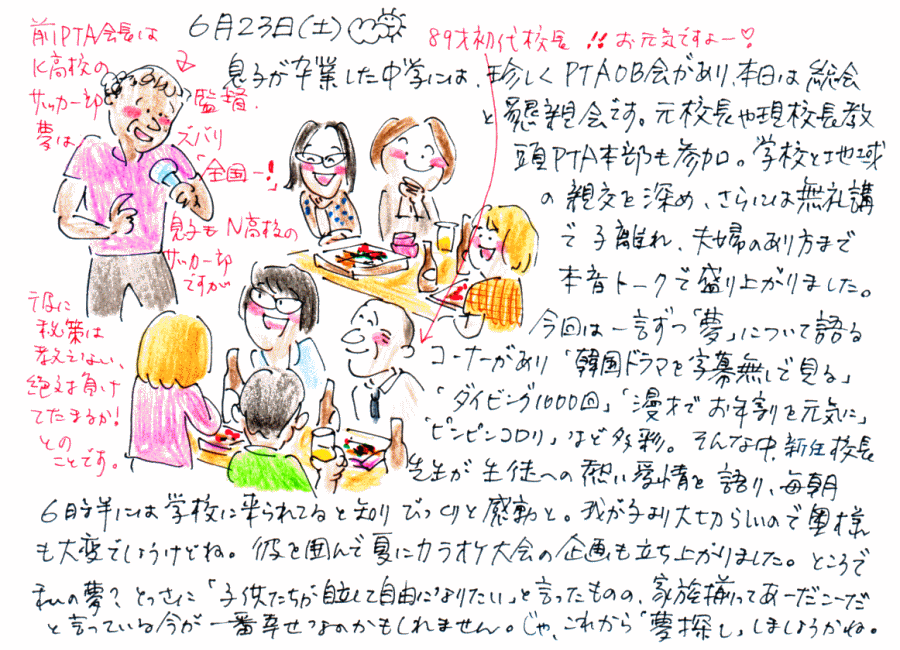 6月23日(土)
前PTA会長は
K高校の
サッカー部
監督.
夢は、
ズバリ
「全国一!」
息子もN高校の
サッカー部
ですが
秘策は
教えない、
絶対負け
てたまるか!
との
ことです。
89才初代校長!!お元気ですよー♡
息子が卒業した中学には、珍しくPTAOB会があり、本日は総会
と懇親会です。元校長や現校長教
頭PTA本部も参加。学校と地域
の親交を深め、さらには無礼講
で子離れ、夫婦のあり方まで
本音トークで盛り上がりました。
今回は一言ずつ「夢」について語る
コーナーがあり「韓国ドラマを字幕無しで見る」
「ダイビング1000回」「漫才でお年寄りを元気に」
「ピンピンコロリ」など多彩。そんな中、新任校長
先生が生徒への熱い愛情を語り、毎朝
6時半には学校に来られてると知りびっくりと感動と。我が子より大切らしいので奥様
も大変でしょうけどね。彼を囲んで夏にカラオケ大会の企画も立ち上がりました。ところで
私の夢?とっさに「子供たちが自立して自由になりたい」と言ったものの、家族揃ってあーだこーだ
と言っている今が一番幸せなのかもしれません。じゃ、これから「夢探し」しましょうかね。